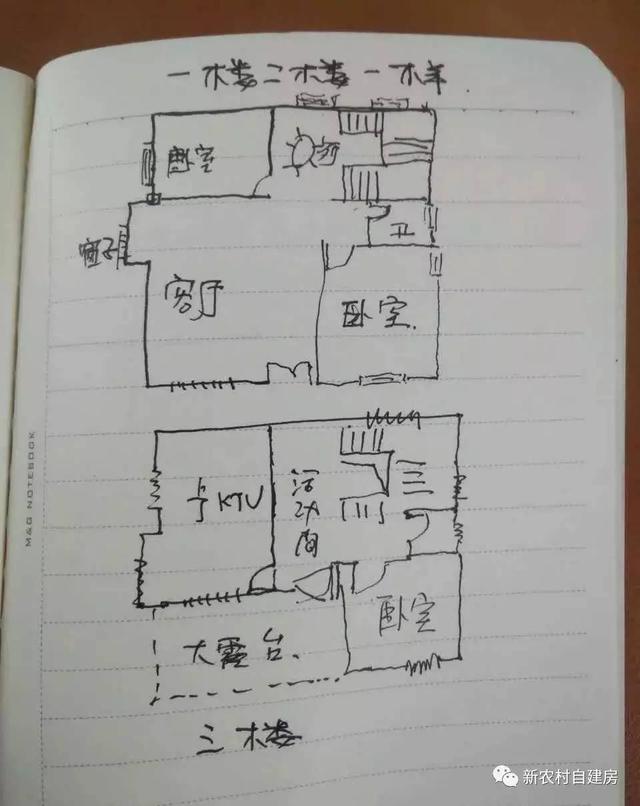 一楼二楼一样
卧室
厅
窗子
卫
客厅
卧室
KTV
活动间
卧室
大露台
三楼
M&G NOTEBOOK
新农村自建房